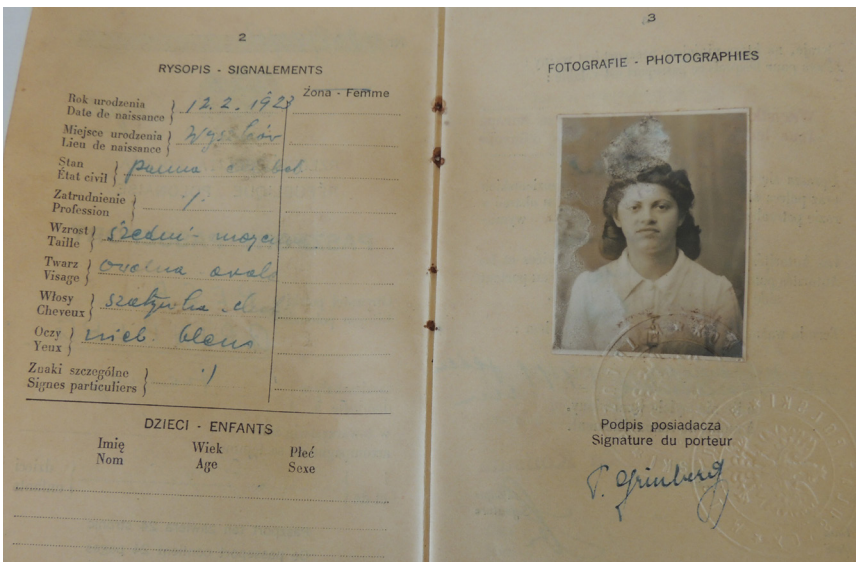 2
RYSOPIS - SIGNALEMENTS
Żona - Femme
Rok urodzenia
Date de naissance
12.2.1923
Miejsce urodzenia
Lieu de naissance
Stan
État civil
panna
Zatrudnienie
Profession
./.
Wzrost
Taille
średni - moyen
Twarz
Visage
owalna ovale
Włosy
Cheveux
szatynka
Oczy
Yeux
nieb. bleus
Znaki szczególne
Signes particuliers
./.
DZIECI - ENFANTS
Imię Wiek Płeć
Nom Age Sexe
3
FOTOGRAFIE - PHOTOGRAPHIES
Podpis posiadacza
Signature du porteur
P. Grinberg